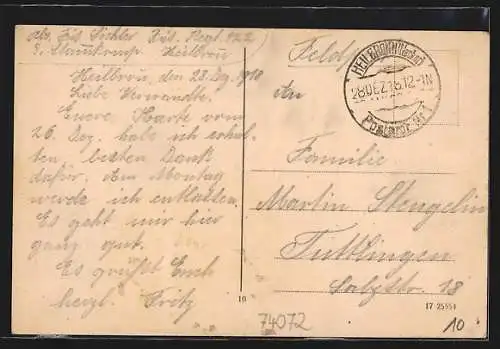 Abs. Füs. Fichler Füs. Regl. 122
Heilbron
Heilbron, den 28. Dez. 1918
Liebe Verwandte.
Euere Karte vom
26. Dez. habe ich erhal-
ten, besten Dank
dafür. Am Montag
werde ich entlassen.
Es geht mir hier
ganz gut.
Es grüßt Euch
herzl. Fritz
Feldp
HEILBRONN (Neckar)
28 DEZ 18. 12-1N
Postamt Nr 1
An
Familie
Martin Stengelin
Tuttlingen
Salzstr. 18
10
17 2555
74072
10